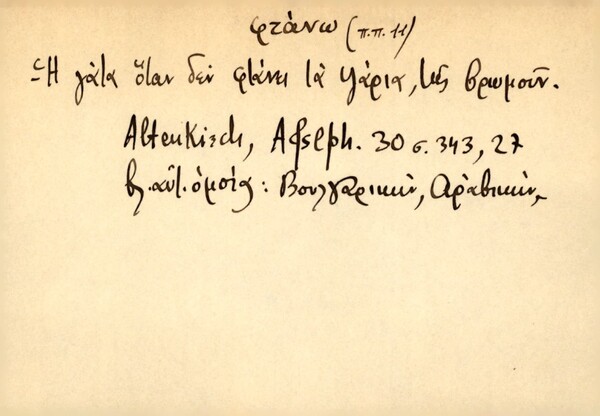 φτάνω (π.π. 11)
Ἡ γάτα ὅταν δὲν φτάνει τὰ ψάρια, τῆς βρωμοῦν.
Altenkirch, Afslph. 30 σ. 343, 27
βλ. αὐτ. ὁμοία: Βουλγαρικήν, Ἀραβικήν,